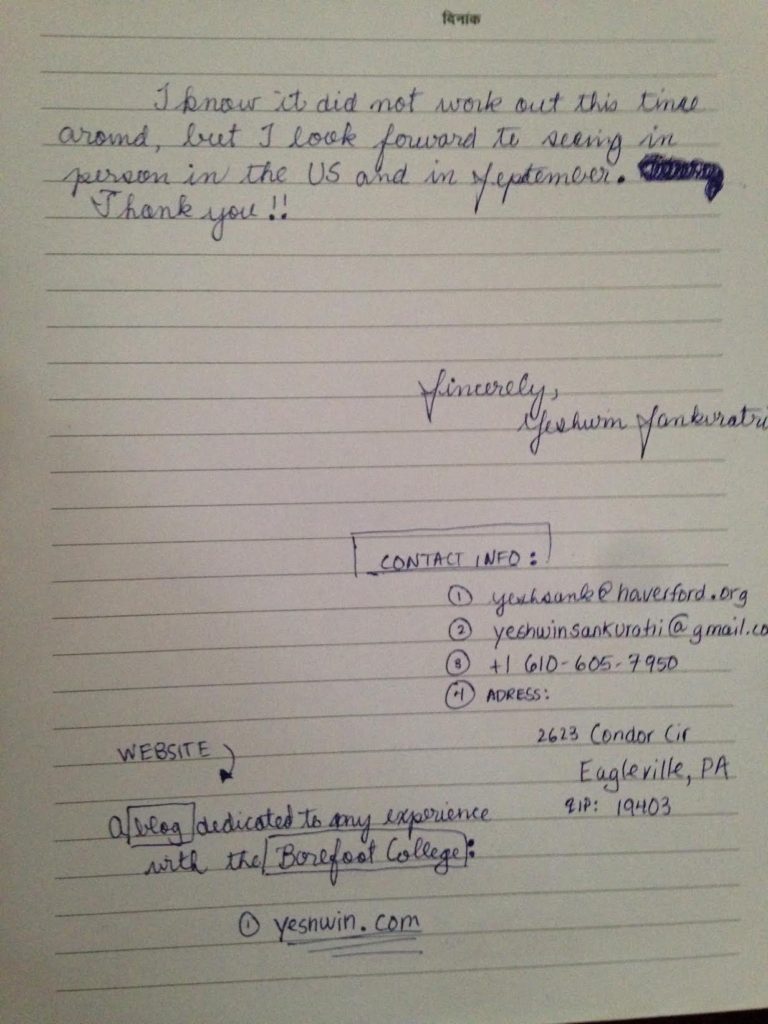 दिनांक
I know it did not work out this time
around, but I look forward to seeing in
person in the US and in September.
Thank you!!
Sincerely,
Yeshwin Sankuratri
CONTACT INFO:
① yeshsank@haverford.org
② yeshwinsankuratri@gmail.co
③ +1 610-605-7950
④ ADRESS:
2623 Condor Cir
Eagleville, PA
ZIP: 19403
WEBSITE
a blog dedicated to my experience
with the Barefoot College:
① yeshwin.com